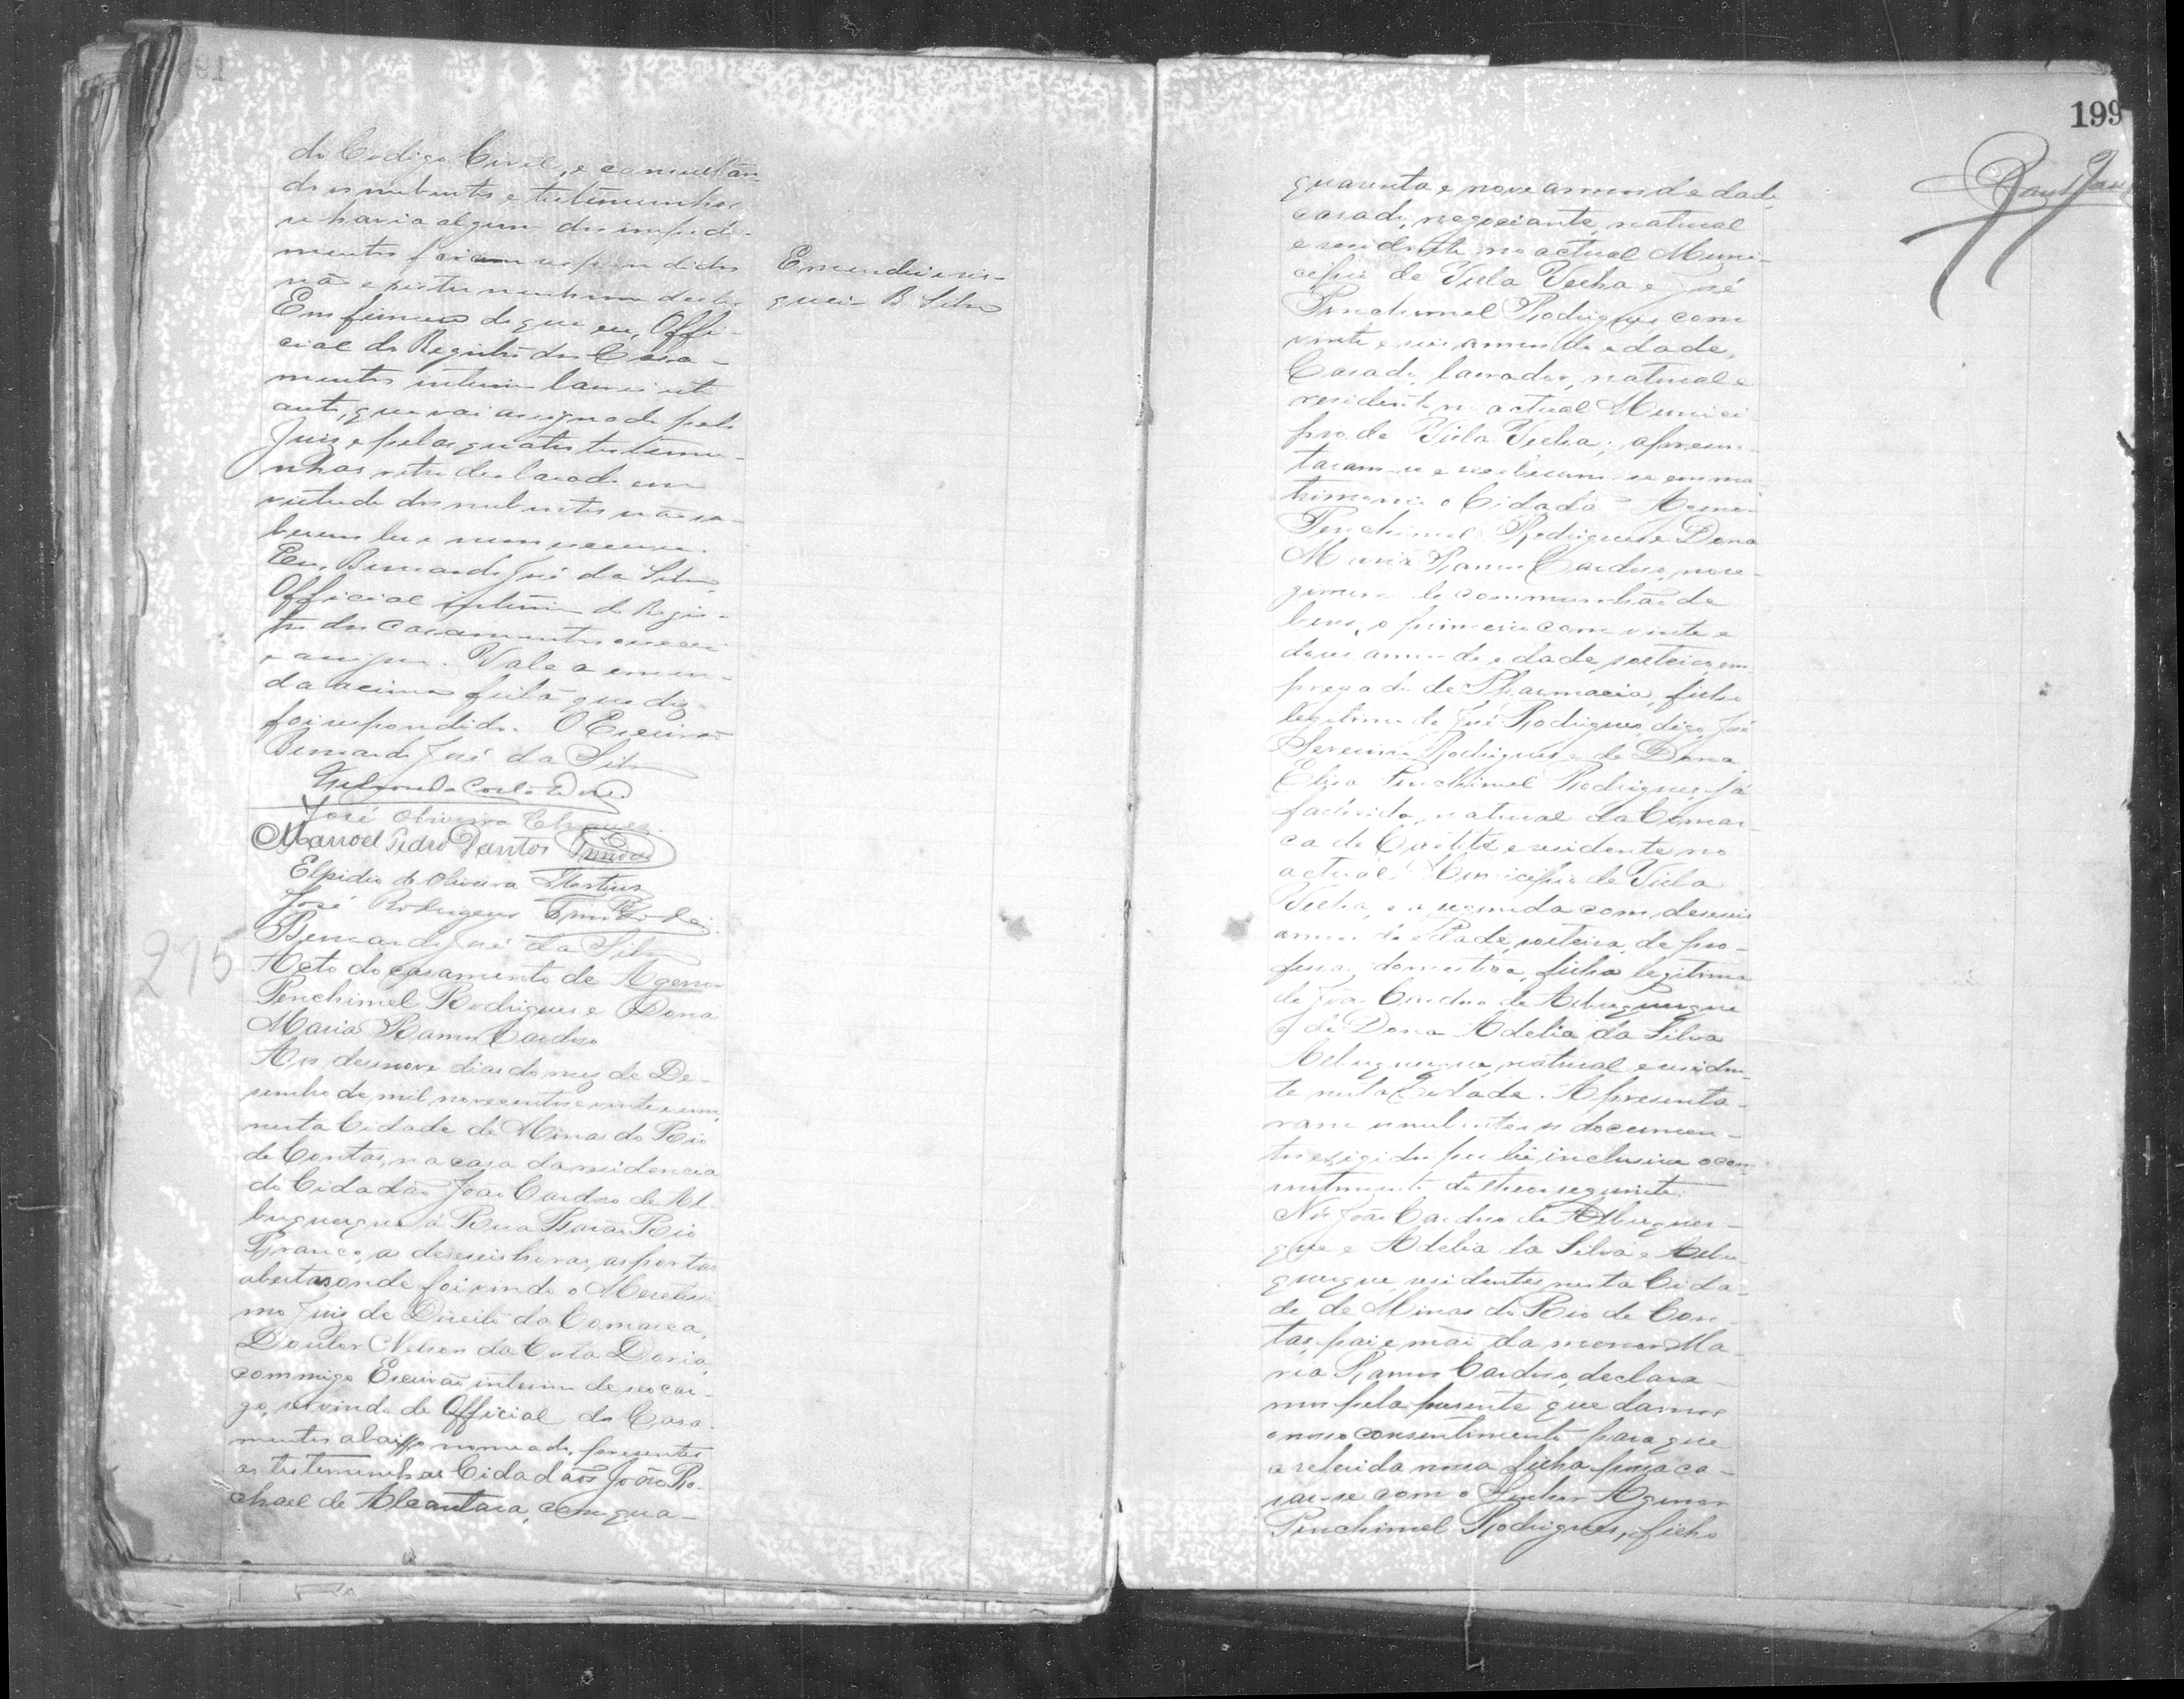 do Codigo Civil, e consultan-
do os nubentes e testemunhas
se havia algum dos impedi-
mentos foram respondidos
não existir nenhum delles
Em firmeza do que eu, Offi-
cial do Registro dos Casa-
mentos interino lavrei este
auto, que vai assignado pelo
Juiz e pelas quatro testemu-
nhas retro declarado em
virtude dos nubentes não sa-
berem ler e nem escrever.
Eu, Bernardo José da Silva,
Official interino do Regis-
tro dos Casamentos escrevi
e assigno. Vale a emen-
da acima feita que diz
foi respondido. O Escrivão
Bernardo José da Silva
Nelson da Costa Doria
José Oliveira
Manoel Pedro Dantos
Elpidio de Oliveira Martins
José Rodrigues
Bernardo José da Silva
275
Acto do casamento de Agenor
Penchimel Rodrigues e Dona
Maria Ramos Cardoso
Aos desenove dias do mez de De-
sembro de mil novecentos e vinte e um,
nesta Cidade de Minas do Rio
de Contas, na casa da residencia
do Cidadão João Cardoso de Al-
buquerque á Rua Barão Rio
Branco, as deseseis horas, as portas
abertas onde foi vindo o Meretissi-
mo Juiz de Direito da Comarca,
Doutor Nelson da Costa Doria,
commigo Escrivão interino de seo car-
go, servindo de Official dos Casa-
mentos abaixo nomeado, presentes
as testemunhas Cidadãos João Ra-
chael de Alcantara, com qua-
Emendei e ris-
quei B. Silva
199
quarenta e nove annos de edade,
casado, negociante, natural
e residente no actual Muni-
cipio de Villa Velha e José
Penchimel Rodrigues com
vinte e seis annos de edade,
Casado, lavrador, natural e
residente no actual Munici-
pio de Villa Velha; apresen-
taram-se e receberam-se em ma-
trimonio o Cidadão Agenor
Penchimel Rodrigues e Dona
Maria Ramos Cardoso, no re-
gimen de communhão de
bens, o primeiro com vinte e
dous annos de edade, solteiro, em-
pregado de Pharmacia, filho
legitimo de José Rodrigues, digo, José
Rodrigues e de Dona
Elisa Penchimel Rodrigues, já
fallecida, natural da Comar-
ca de Caetité e residente no
actual Municipio de Villa
Velha, e a segunda com deseseis
annos de edade, solteira, de pro-
fissão domestica, filha legitima
de João Cardoso de Albuquerque
e de Dona Adelia da Silva
Albuquerque, natural e residen-
te nesta Cidade. Apresenta-
ram os nubentes os documen-
tos exigidos por lei inclusive o con-
sentimento do theor seguinte:
Nós João Cardoso de Albuquer-
que e Adelia da Silva e Albu-
querque, residentes nesta Cida-
de de Minas do Rio de Con-
tas, pai e mãi da menor Ma-
ria Ramos Cardoso, declara-
mos pela presente que damos
o nosso consentimento para que
a referida nossa filha possa ca-
sar-se com o Senhor Agenor
Penchimel Rodrigues, filho